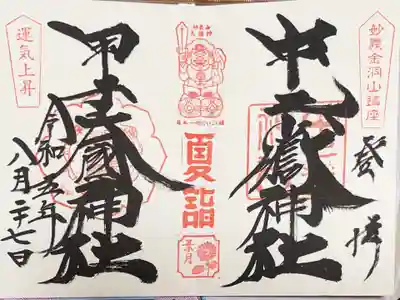 妙義金洞山鎮座
登拝
中之嶽神社
夏詣
葉月
甲子大國神社
運気上昇
令和五年
八月二十七日